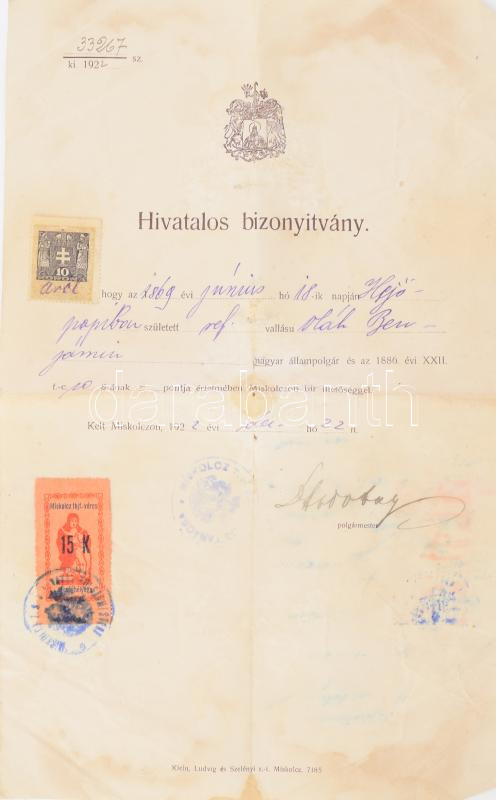 33267
ki 1922 sz.
Hivatalos bizonyitvány.
10
hogy az 1869 évi június hó 18-ik napján Hejő-
papiban született ref. vallásu Oláh Ben-
jámin magyar állampolgár és az 1886. évi XXII.
t.-c. 10 §-ának - pontja értelmében Miskolczon bir illetőséggel.
Kelt Miskolczon, 1922 évi jan. hó 22 n.
MISKOLCZ
Miskolcz thjf. város
15 K
polgármester
darabanth
Klein, Ludvig és Szelényi r.-t. Miskolcz. 7485